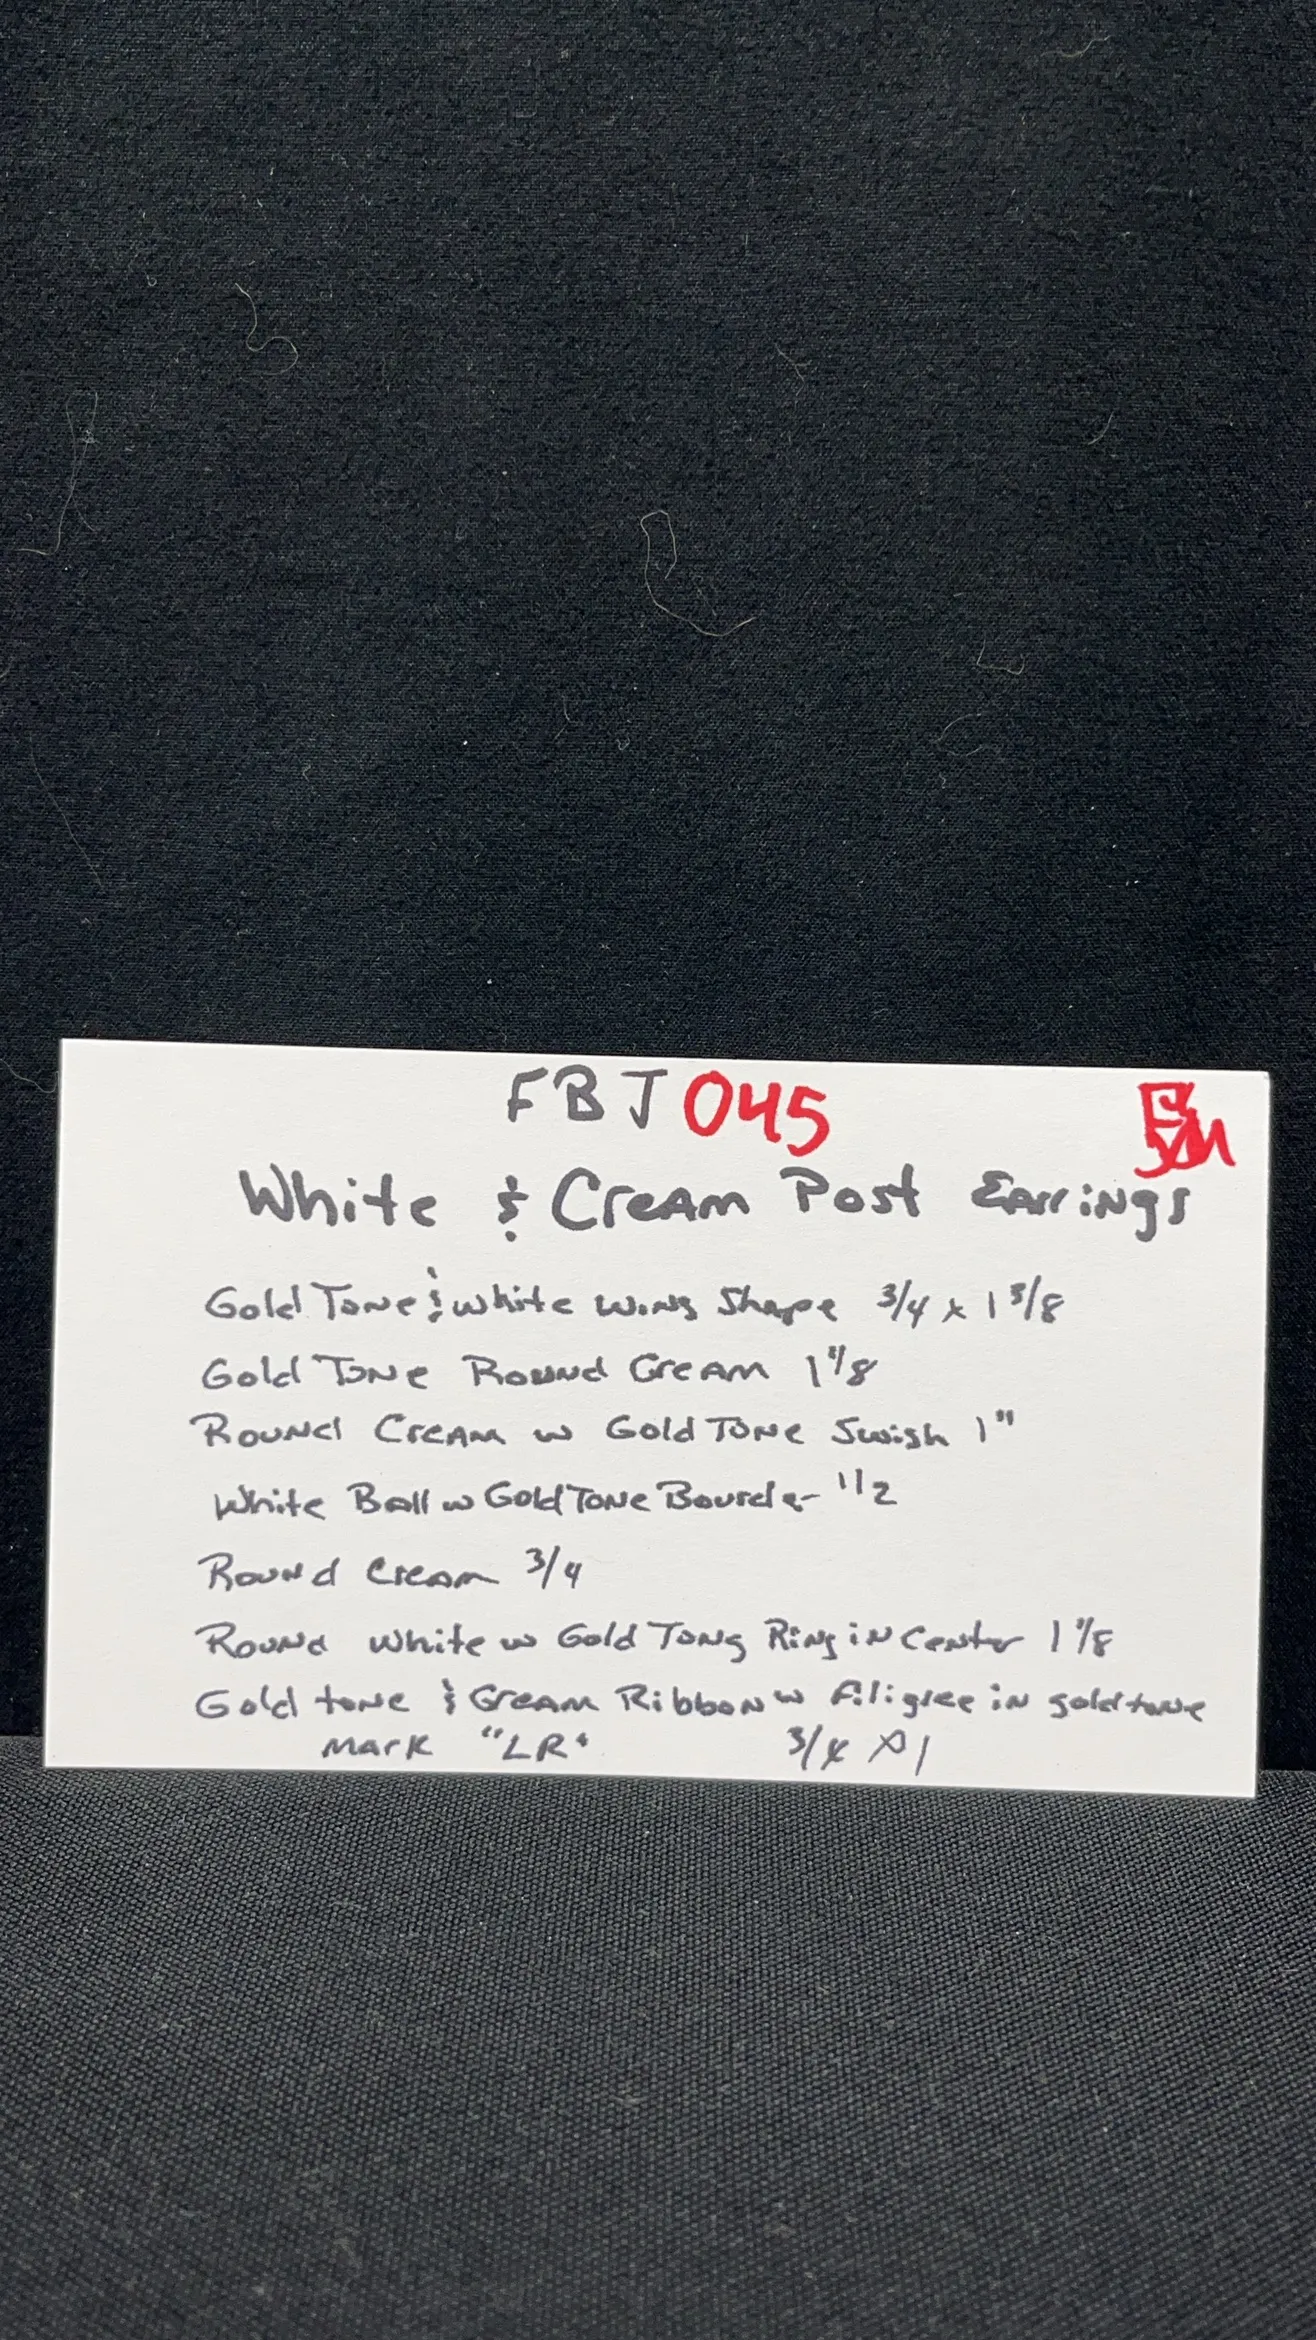 FBJ 045
White & Cream Post Earrings
Gold Tone & White Wing Shape 3/4 x 1 5/8
Gold Tone Round Cream 1 1/8
Round Cream w Gold Tone Swish 1"
White Ball w Gold Tone Bourder 1/2
Round Cream 3/4
Round White w Gold Tong Ring in Center 1 1/8
Gold tone & Cream Ribbon w Filigree in goldtone
Mark "LR" 3/4 x 1